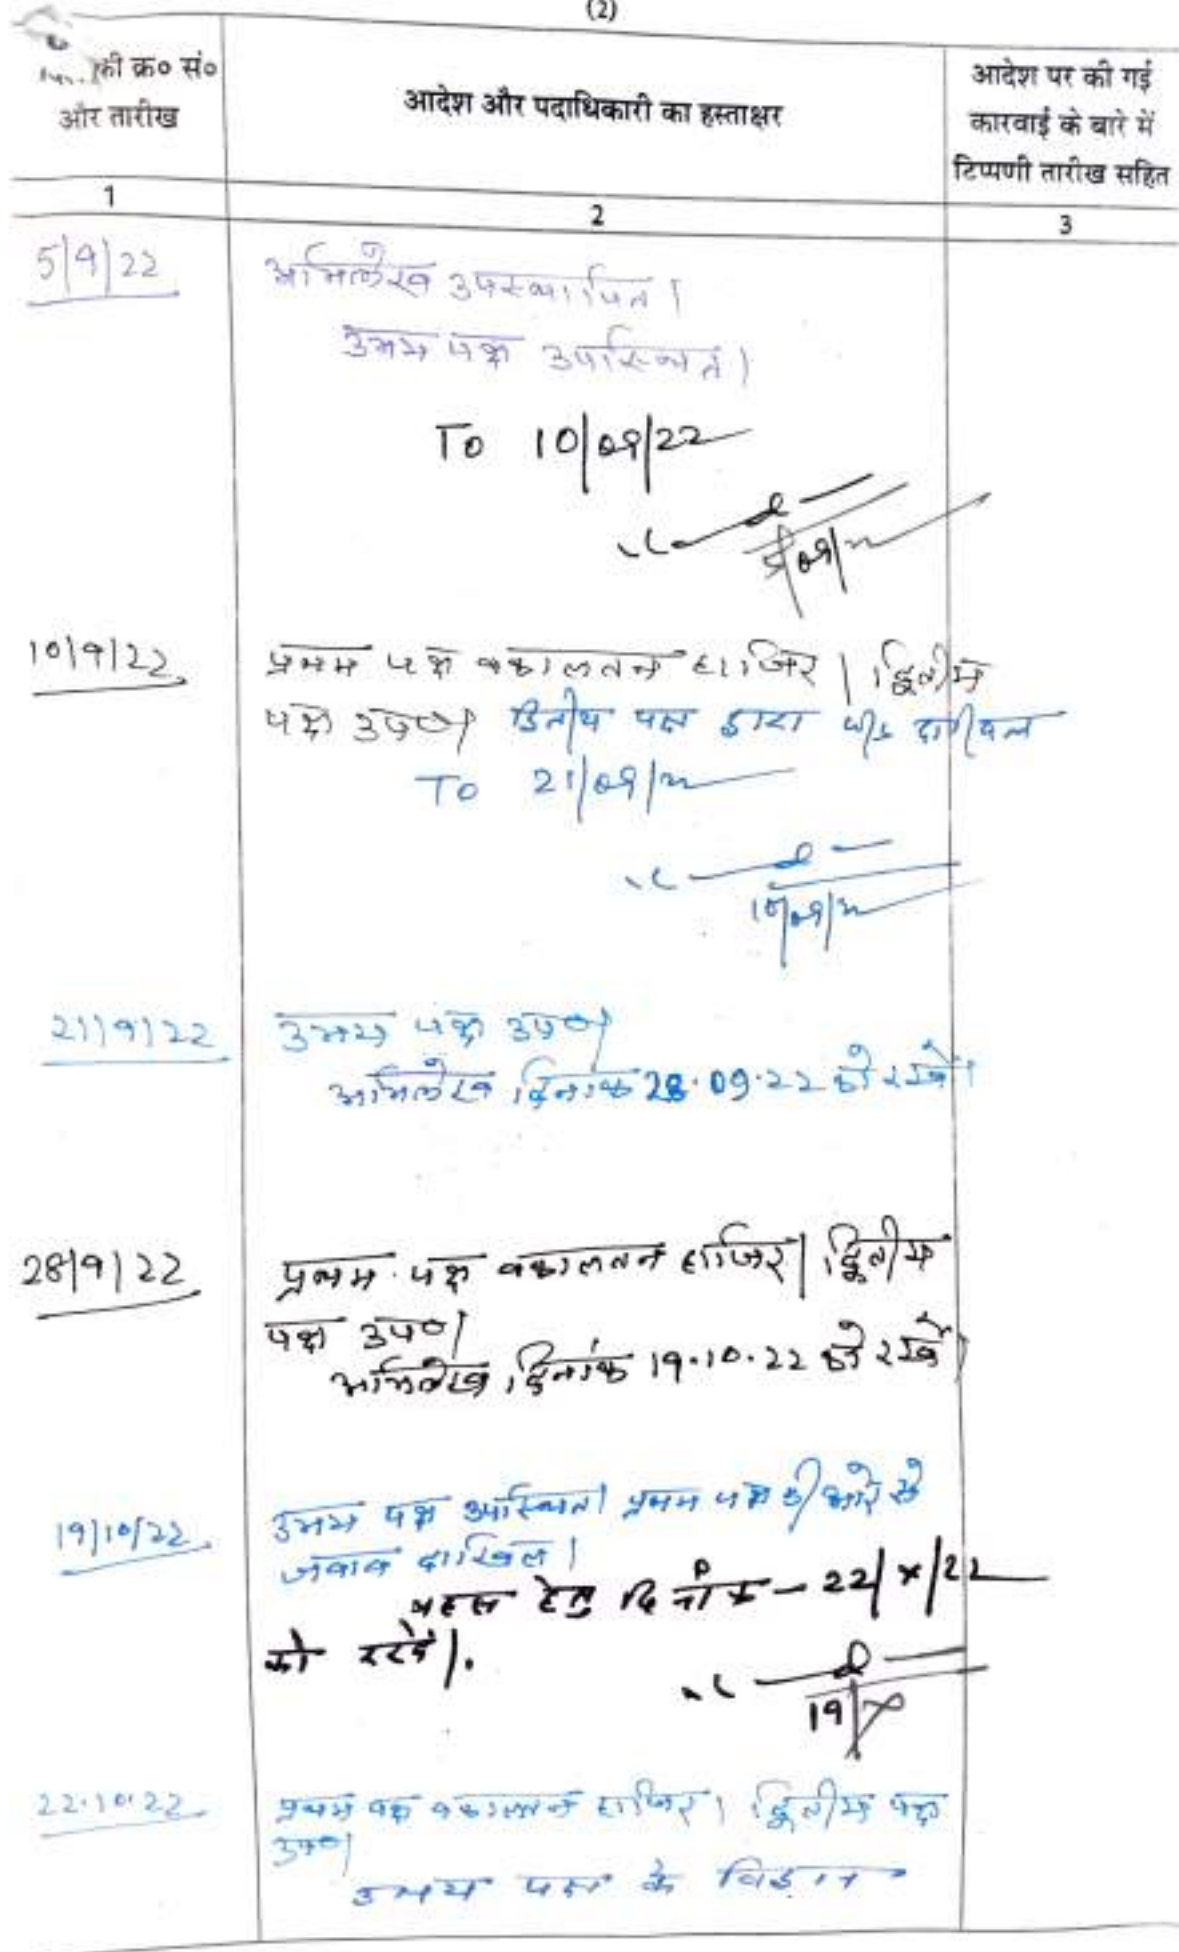 (2)
की क्र० सं०
और तारीख
आदेश और पदाधिकारी का हस्ताक्षर
आदेश पर की गई
कारवाई के बारे में
टिप्पणी तारीख सहित
1
2
3
5/9/22
अभिलेख उपस्थापित।
उभय पक्ष उपस्थित।
To 10/09/22
5/09/22
10/9/22
प्रथम पक्ष वकालतन हाजिर। द्वितीय
पक्ष उप०। द्वितीय पक्ष द्वारा दाखिल
To 21/09/22
10/09/22
21/9/22
उभय पक्ष उप०।
अभिलेख दिनांक 28.09.22 को रखें।
28/9/22
प्रथम पक्ष वकालतन हाजिर। द्वितीय
पक्ष उप०।
अभिलेख दिनांक 19.10.22 को रखें।
19/10/22
उभय पक्ष उपस्थित। प्रथम पक्ष की ओर से
जवाब दाखिल।
बहस हेतु दिनांक - 22/X/22
को रखें।
19/X
22.10.22
प्रथम पक्ष वकालतन हाजिर। द्वितीय पक्ष
उप०।
उभय पक्ष के विद्वान